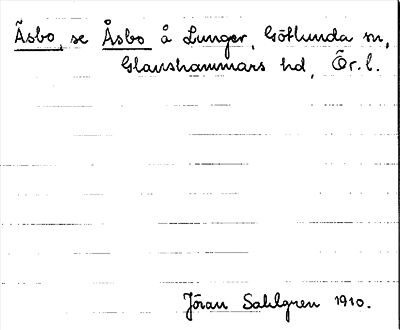 Äsbo, se Åsbo å Lunger, Götlunda sn,
Glanshammars hd, Ör. l.
Jöran Sahlgren 1910.